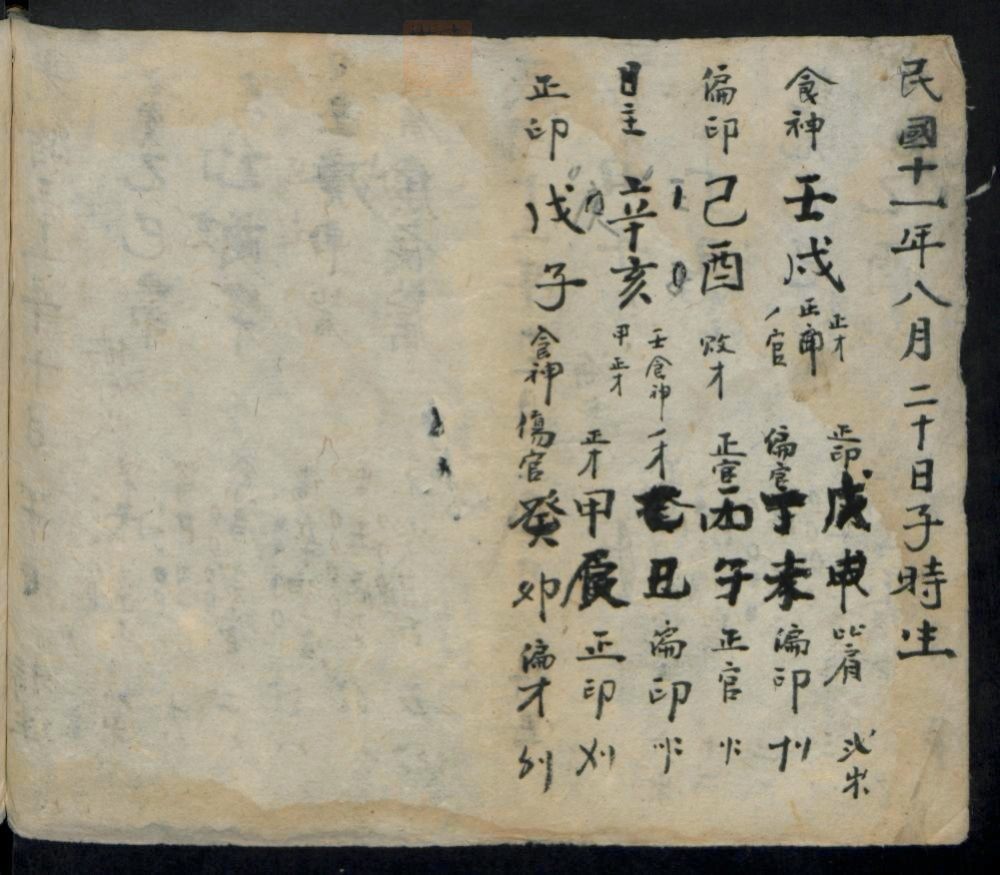 民國十一年八月二十日子時生
食神 壬戌 正才
正印
八官
偏印 己酉 敗才
日主 辛亥 壬食神
甲正才
正印 戊子 食神
正印 戊申 比肩
偏官 丁未 偏印
正官 丙午 正官
一才 丑 偏印
正才 甲辰 正印
傷官 癸卯 偏才